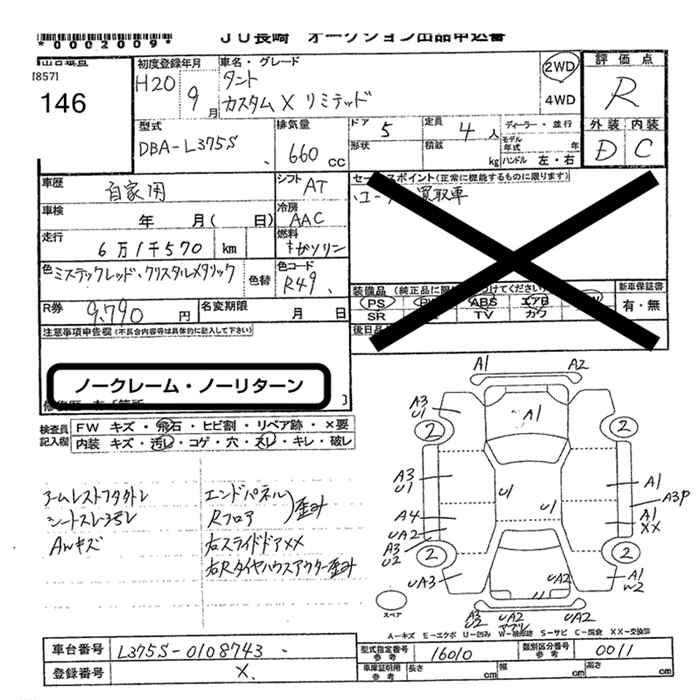 *0002009*
JU長崎 オークション出品申込書
[857]
146
初度登録年月
H20 9月
車名・グレード
タント
カスタムX リミテッド
2WD
4WD
評価点
R
外装 内装
D C
型式
DBA-L375S
排気量
660 cc
ドア 5
定員 4人
ディーラー・並行
形状
積載 kg
モデル年式 年
ハンドル 左・右
車歴
自家用
シフト AT
セールスポイント(正常に機能するものに限ります)
買取車
車検 年 月( 日)
冷房 AAC
走行 6万1千570 km
燃料 ガソリン
色 ミステックレッド、クリスタルメタリック
色替
色コード R49
装備品
PS ABS エアB
SR TV カワ
新車保証書
有・無
R券 9,790円
名変期限 月 日
後日品
注意事項申告欄(不具合内容等は具体的に記入して下さい)
ノークレーム・ノーリターン
検査員記入欄
FW キズ・飛石・ヒビ割・リペア跡・×要
内装 キズ・汚レ・コゲ・穴・スレ・キレ・破レ
シートスレ
AWキズ
エンドパネル
Rフロア
歪み
右スライドドアXX
右Rタイヤハウスアウター歪み
A1 A2
A3
U1
A1
2 2
A3
U1
U1 U1
A1
A3P
A4
UA2
A1
XX
A3
U2
2 2
UA3
UA2
A1
W2
A3
U2
UA2
UA2
スペア
A-キズ E-エクボ U-凹み W-補修跡 S-サビ C-腐食 XX-交換済
車台番号 L375S-0108743
型式指定番号参考 16010
類別区分番号参考 0011
登録番号 X
車庫証明用参考 長さ 幅 高さ